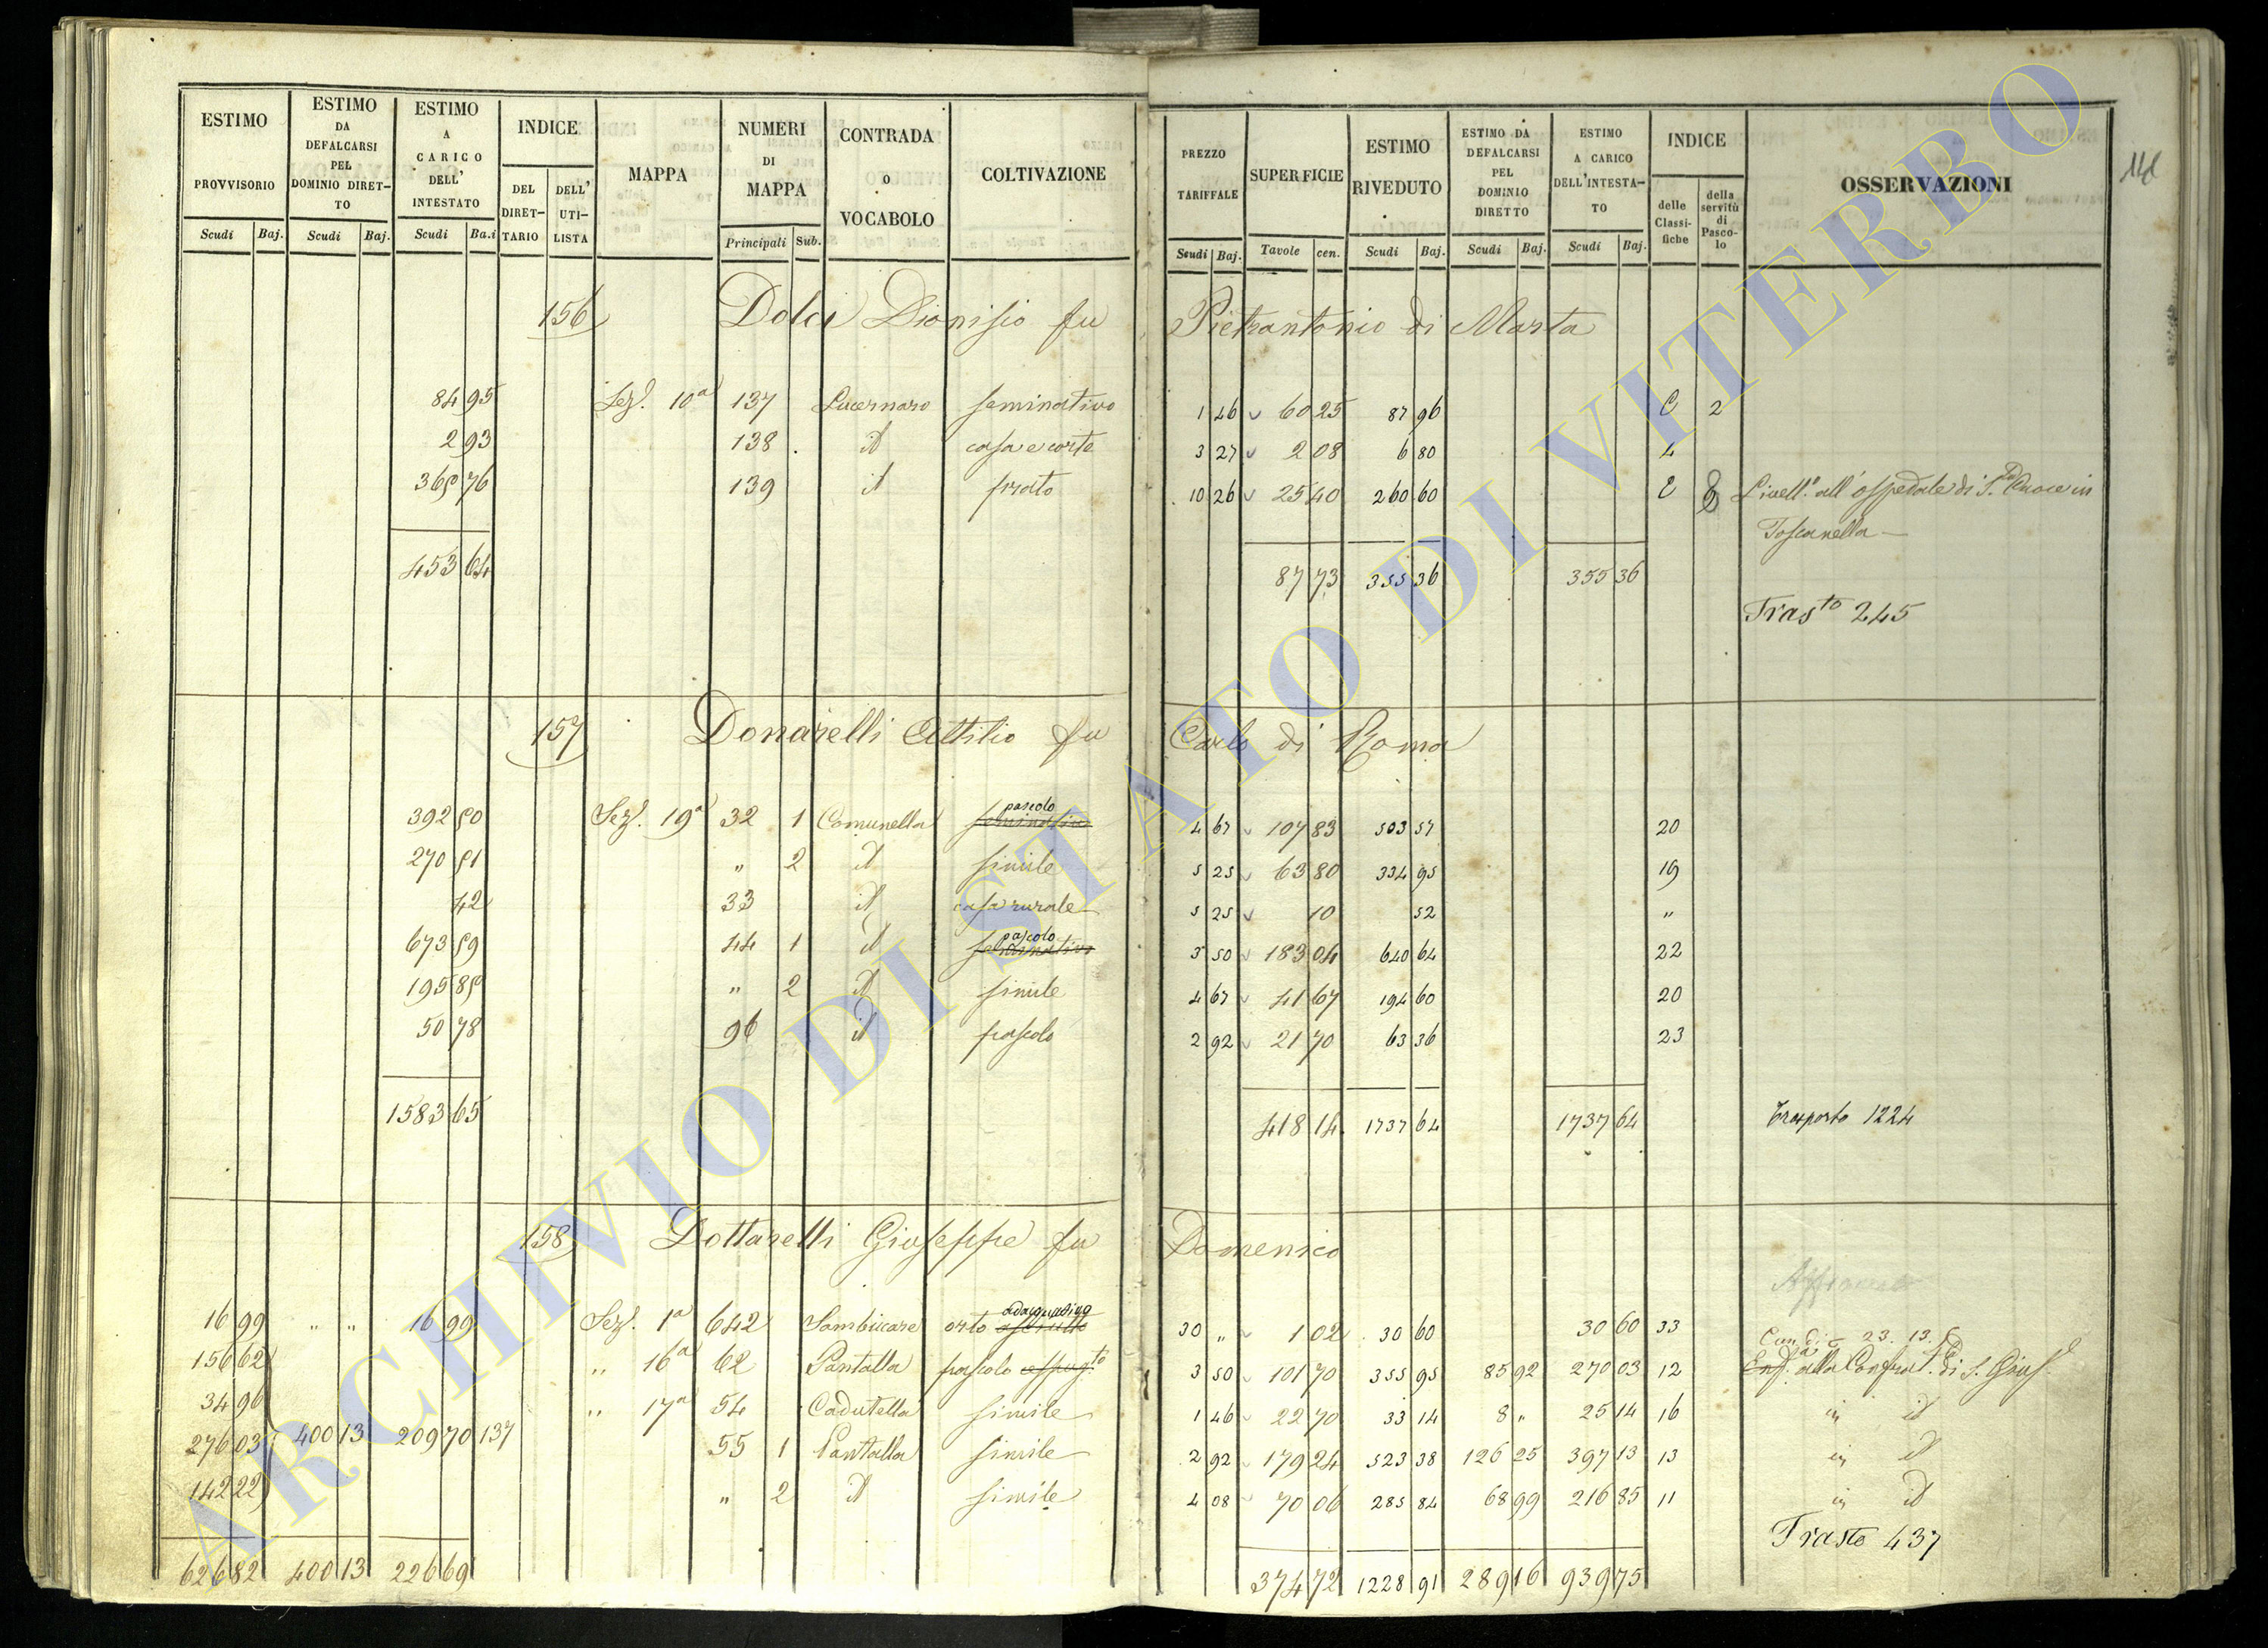 ESTIMO PROVVISORIO Scudi Baj. ESTIMO DA DEFALCARSI PEL DOMINIO DIRETTO Scudi Baj. ESTIMO A CARICO DELL' INTESTATO Scudi Ba.i INDICE DEL DIRETTARIO DELL' UTILISTA MAPPA NUMERI DI MAPPA Principali Sub. CONTRADA O VOCABOLO COLTIVAZIONE
PREZZO TARIFFALE Scudi Baj. SUPERFICIE Tavole cen. ESTIMO RIVEDUTO Scudi Baj. ESTIMO DA DEFALCARSI PEL DOMINIO DIRETTO Scudi Baj. ESTIMO A CARICO DELL'INTESTATO Scudi Baj. INDICE delle Classifiche della servitù di Pascolo OSSERVAZIONI
156 Dolci Dionisio fu Pietrantonio di Marta
84 95 Sez. 10a 137 Lucernaro seminativo 1 46 60 25 87 96 C 2
2 93 138 id casa e corte 3 27 2 08 6 80 L
365 76 139 id prato 10 26 25 40 260 60 Livell. all'ospedale di S. Croce in
Toscanella
453 64 87 73 355 36 355 36
Trasto 245
157 Donarelli Attilio fu Carlo di Roma
392 50 Sez. 19a 32 1 Comunella pascolo seminativo 4 67 107 83 503 57 20
270 51 " 2 id simile 5 25 63 80 334 95 19
42 33 id casa rurale 5 25 10 52 "
673 59 44 1 id pascolo seminativo 3 50 183 04 640 64 22
195 85 " 2 id simile 4 67 41 67 194 60 20
50 78 96 id pascolo 2 92 21 70 63 36 23
1583 65 418 14 1737 64 1737 64 Trasporto 1224
158 Dottarelli Giuseppe fu Domenico
16 99 " " 16 99 Sez. 1a 642 Sambucare orto adacquativo asciutto 30 " 1 02 30 60 30 60 33
156 62 " 16a 62 Pantalla pascolo 3 50 101 70 355 95 85 92 270 03 12 alla Confrat. di S. Gius.
34 96 " 17a 54 Cadutella simile 1 46 22 70 33 14 8 " 25 14 16 id
276 03 400 13 209 70 137 55 1 Pantalla simile 2 92 179 24 523 38 126 25 397 13 13 id
142 22 " 2 id simile 4 08 70 06 285 84 68 99 216 85 11 id
Trasto 437
626 82 400 13 226 69 374 72 1228 91 289 16 939 75
ARCHIVIO DI STATO DI VITERBO